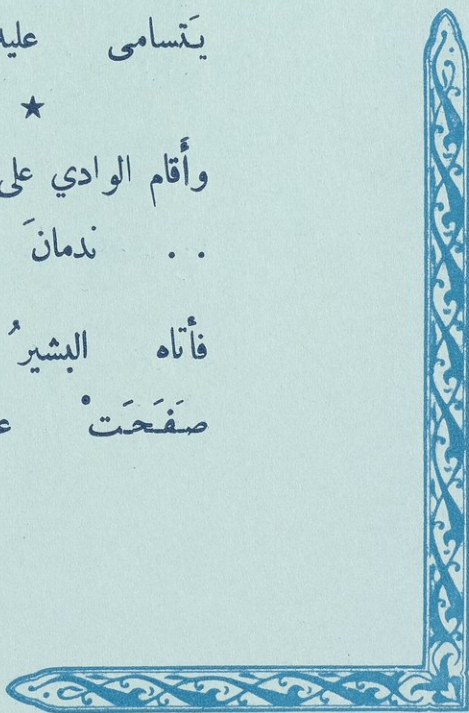 يَتسامى عليه
★
وأَقام الوادي على
. . ندمانَ
فأتاه البشيرُ
صَفَحَتْ